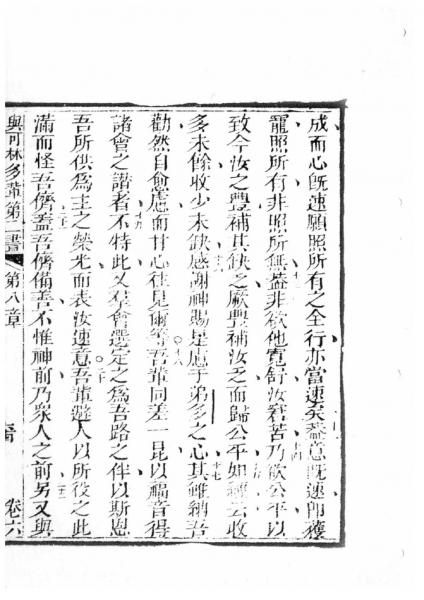 成而心既速願照所有之全行亦當速矣蓋意既速即獲
寵照所有非照所無蓋非欲他寬舒汝窘苦乃欲公平以
致今汝之豐補其缺之厥豐補汝乏而歸公平如經云收
多未餘收少未缺感謝神賜是慮于弟多之心其雖納吾
勸然自愈慮而甘心往見爾等吾輩同差一昆以福音得
諸會之讚者不特此又君會選定之為吾路之伴以斯恩
吾所供為主之榮光而表汝速意吾輩避人以所役之此
滿而怪吾儕蓋吾儕備善不惟神前乃眾人之前另又與
與可林多輩第二書 第八章 卷六